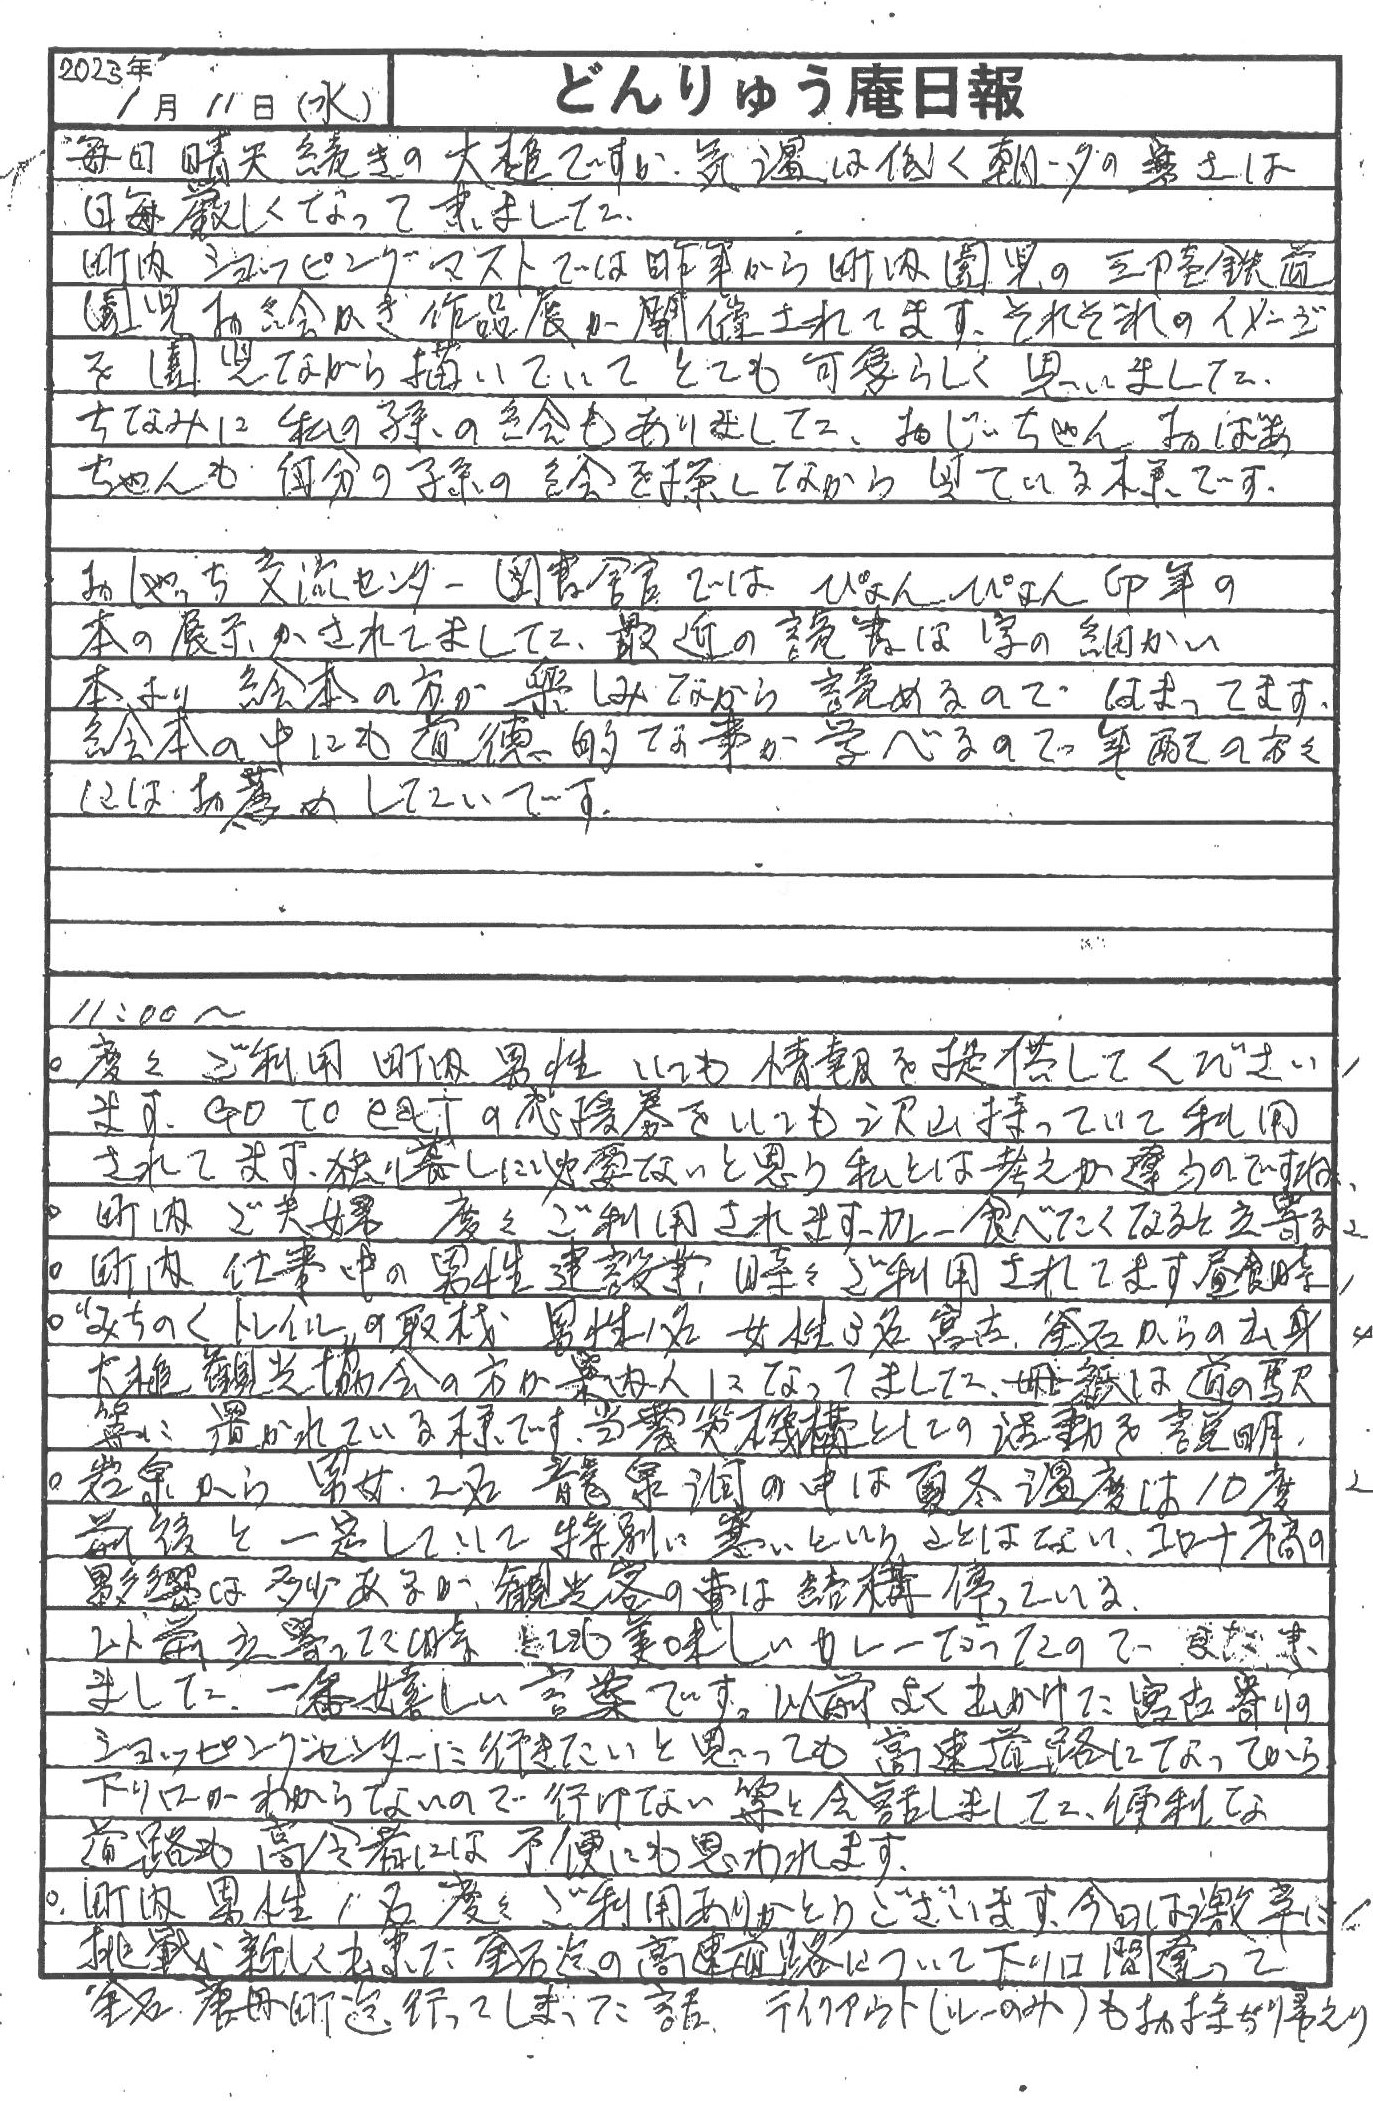 2023年
1月11日(水)
どんりゅう庵日報
毎日晴天続きの大槌ですが、気温は低く朝夕の寒さは
日毎厳しくなって来ました。
町内ショッピングマストでは昨年から町内園児の三陸鉄道
園児お絵かき作品展が開催されてます。それぞれのイメージ
を園児ながら描いていてとても可愛らしく思いました。
ちなみに私の孫の絵もありました、おじいちゃん、おばあ
ちゃんも自分の孫の絵を探しながら見ている様です。
おしゃっち交流センター図書館では ぴょんぴょん卯年の
本の展示がされてました。最近の読書は字の細かい
本より 絵本の方が楽しみながら読めるので はまってます。
絵本の中にも道徳的な事が学べるので年配の方々
にはお薦めしたいです。
11:00〜
○度々ご利用 町内 男性 いつも情報を提供してください 1
ます。Go To eatの応援券をいつも沢山持っていて利用
されてます。独り暮しに必要ないと思う私とは考えが違うのですね。
○町内ご夫婦 度々ご利用されます。カレー食べたくなると立寄る 2
○町内 仕事中の男性建設業、時々ご利用されてます昼食時 1
○"みちのくトレイルの取材 男性1名 女性3名 宮古、釜石からの出身 4
大槌観光協会の方が案内人になってました、冊誌は道の駅
等に置かれている様です、当震災機構としての活動を説明、
○岩泉から男女、2名 龍泉洞の中は夏冬温度は10度 2
前後と一定していて特別に寒いということはない、コロナ禍の
影響は多少あるが、観光客の車は結構停っている、
以前立寄った時とても美味しいカレーだったので また来
ました、一番嬉しい言葉です。以前よく出かけた宮古寄りの
ショッピングセンターに行きたいと思っても高速道路になってから
下り口がわからないので行けない等と会話しました、便利な
道路も高令者には不便にも思われます。
○町内 男性1名 度々ご利用ありがとうございます、今日は激辛に 1
挑戦、新しく出来た釜石迄の高速道路について下り口間違って
釜石 唐丹町迄行ってしまった話、テイクアウト(ルーのみ)もお持ち帰えり